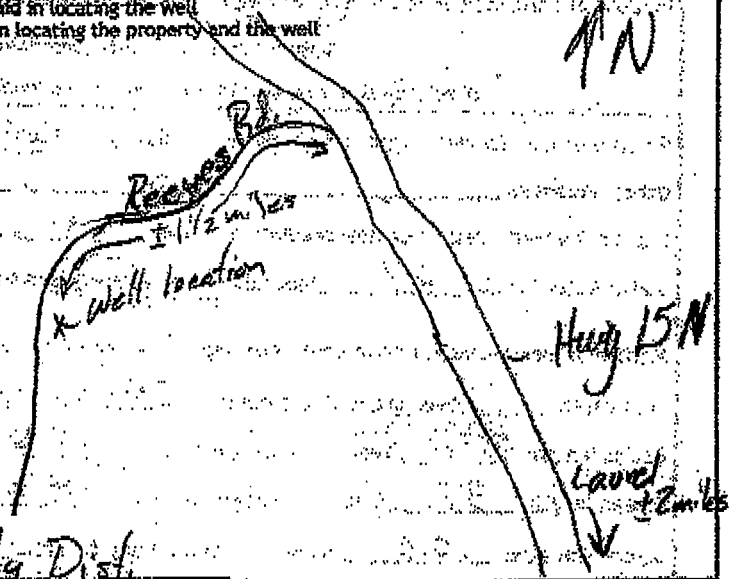 aid in locating the well
n locating the property and the well
↑N
Reeves Rd.
±1 1/2 miles
x Well location
Hwy 15 N
Laurel
±2 miles
Dist.